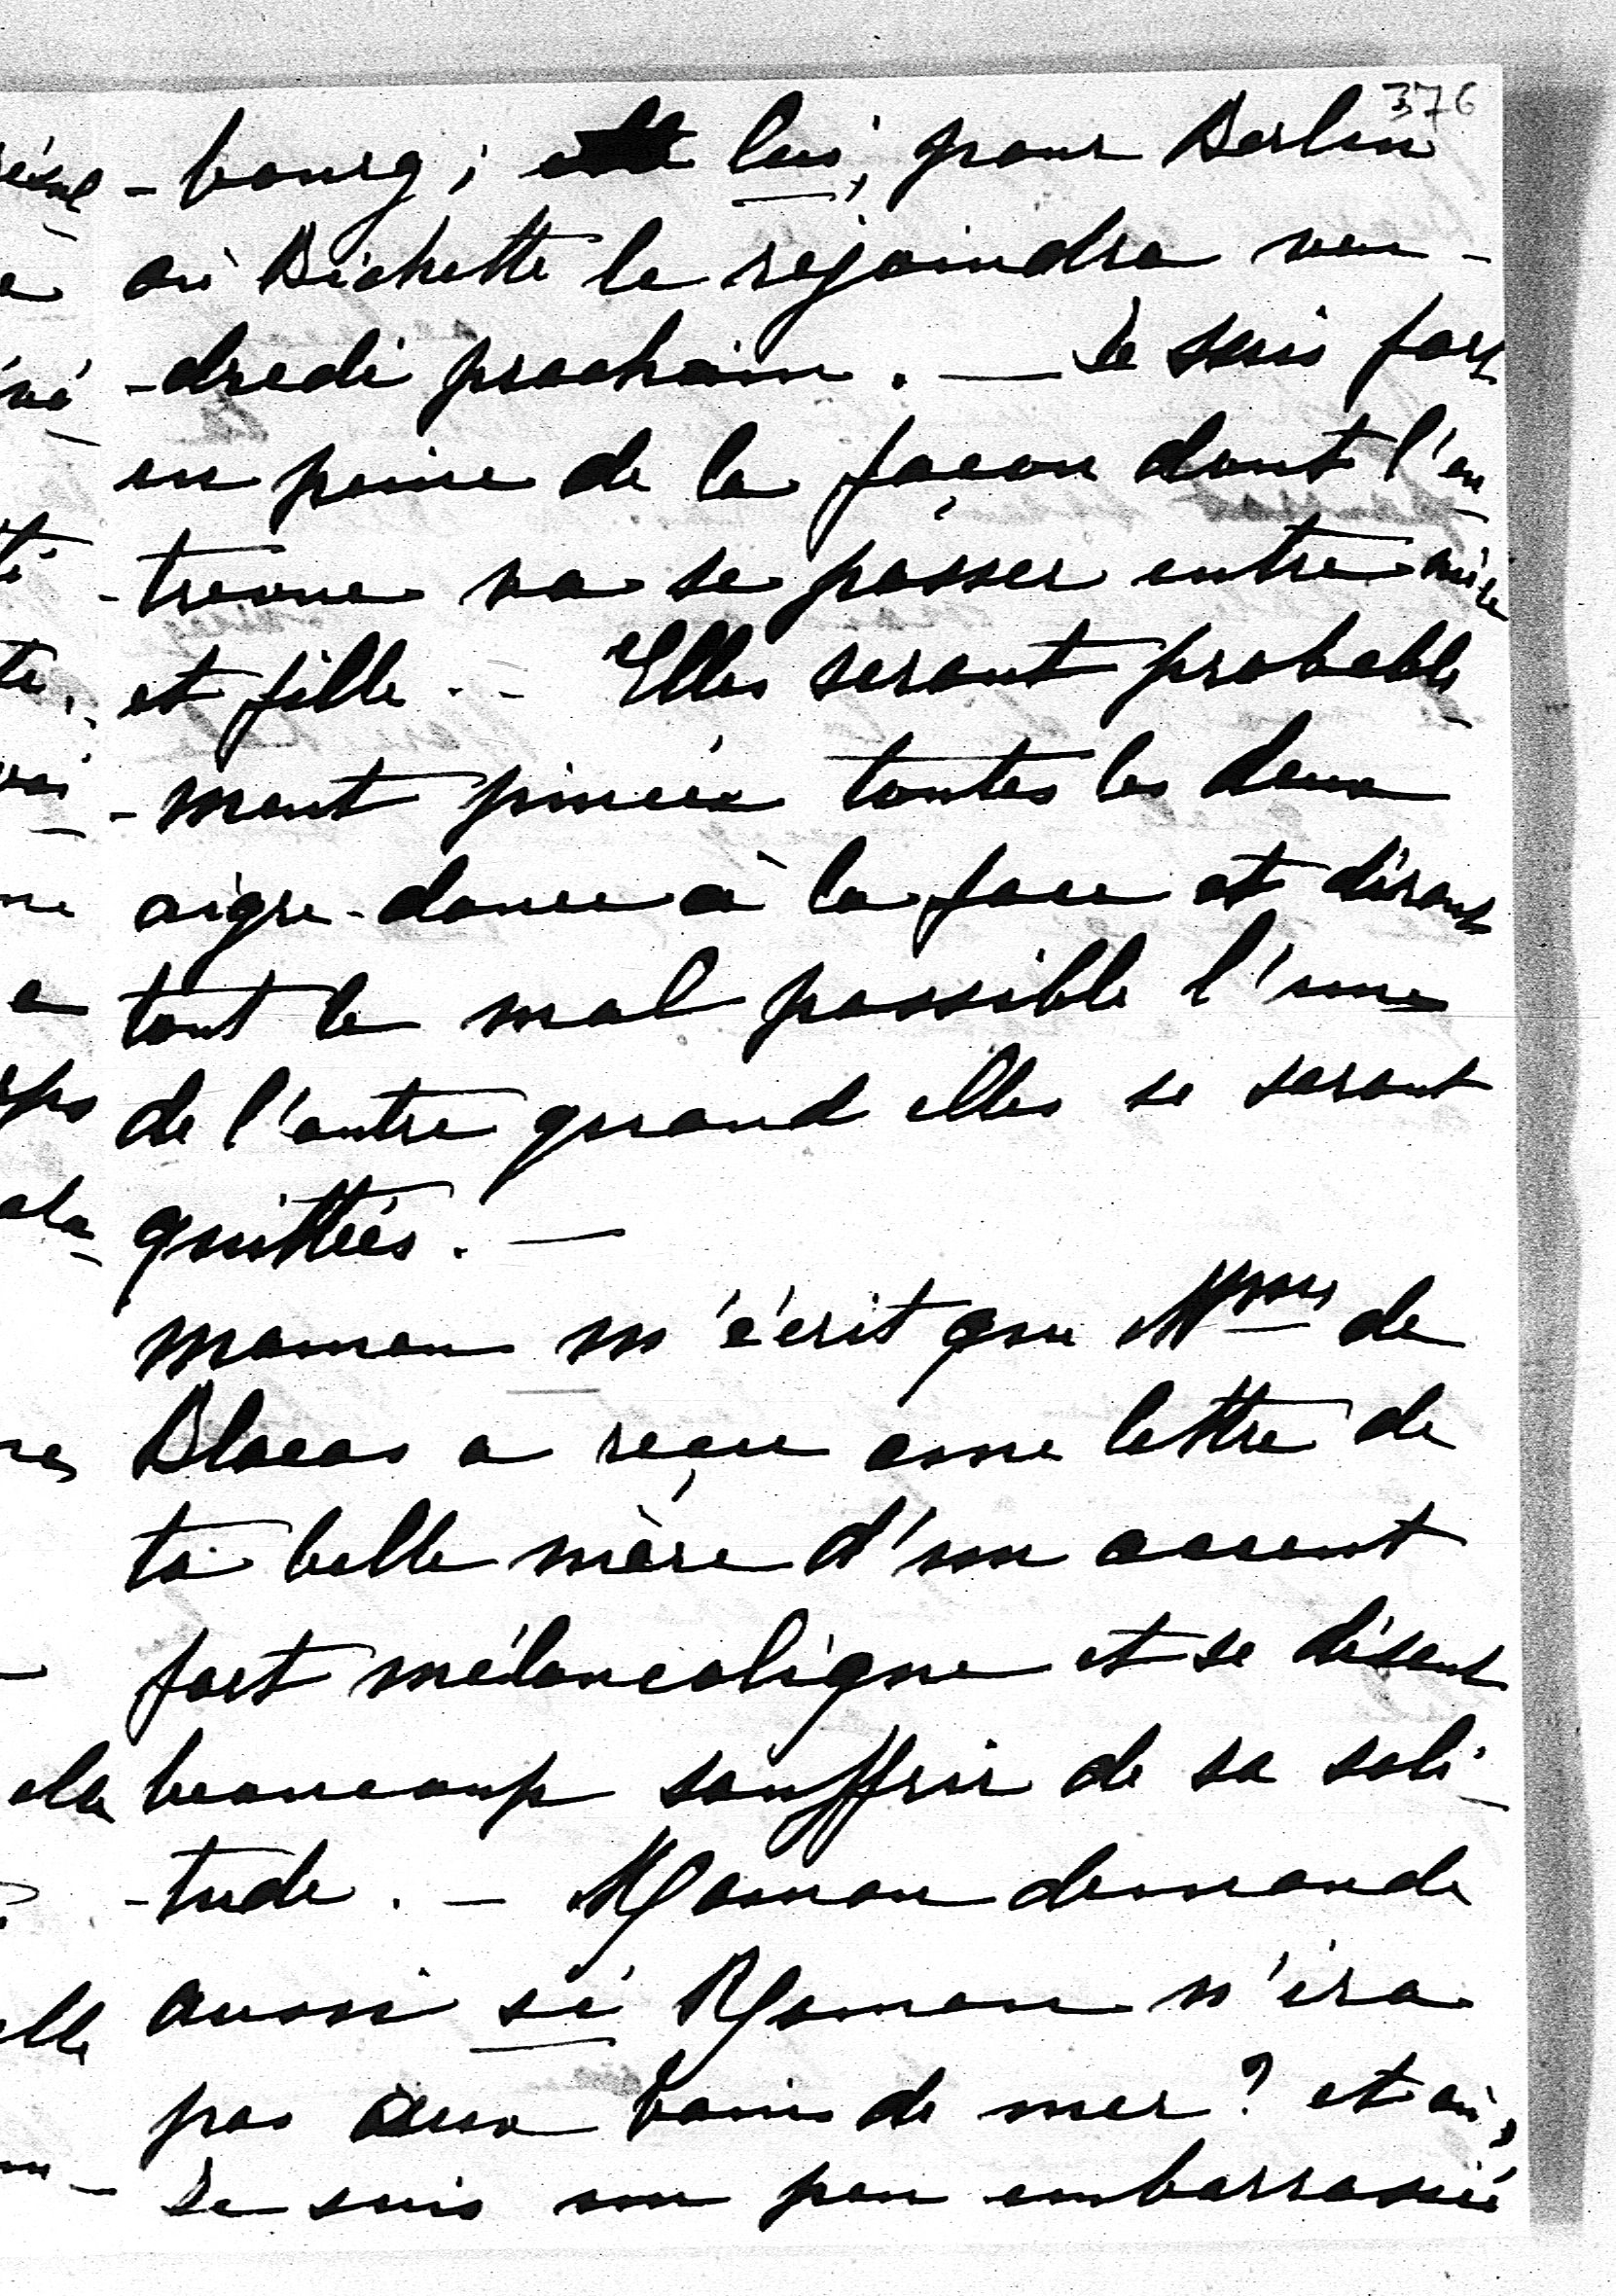 376
- bourg ; lui, pour Berlin
où Bichette le rejoindra ven -
- dredi prochain . — Je suis fort
en peine de la façon dont l'en -
- trevue va se passer entre mère
et fille . - Elles seront probable -
- ment pincées toutes les deux
aigre-douce à la face et diront
tout le mal possible l'une
de l'autre quand elles se seront
quittées . —
maman m'écrit que Mme de
Blacas a reçu une lettre de
ta belle mère d'un accent
fort mélancolique et se disant
beaucoup souffrir de sa soli -
- tude . — Maman demande
aussi si Maman n'ira
pas aux bains de mer ? et où,
Je suis un peu embarrassée